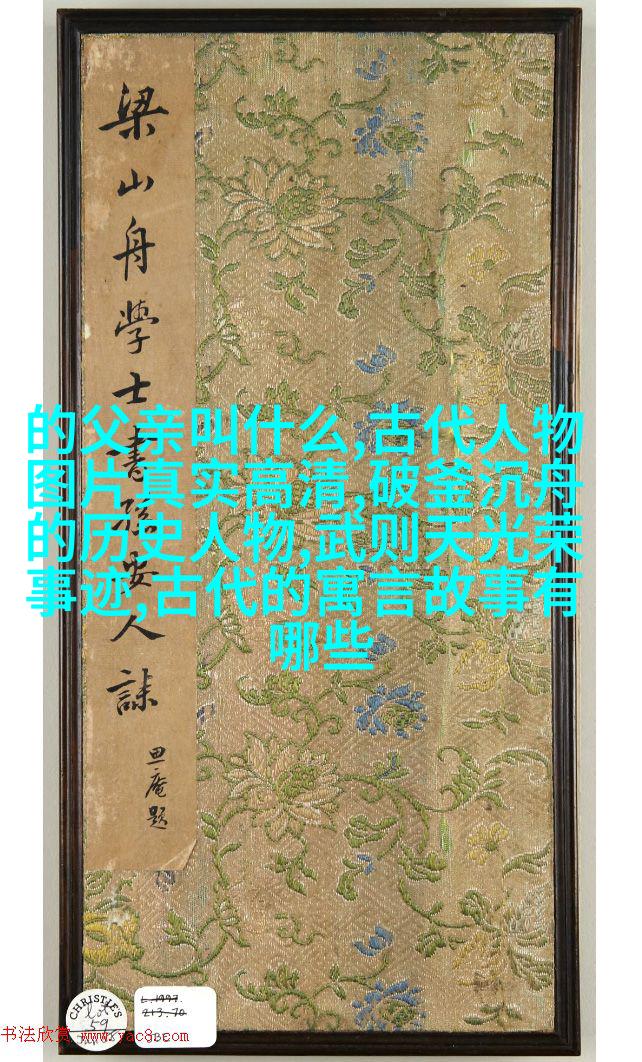 梁山舟學士書孫安人誄
思庵題
的父亲叫什么,古代人物
图片真实高清,破釜沉舟
的历史人物,武则天光荣
事迹,古代的寓言故事有
哪些
CHRISTIE'S
Lot
59
L.1997.
213.70
书法欣赏 www.yac8.com